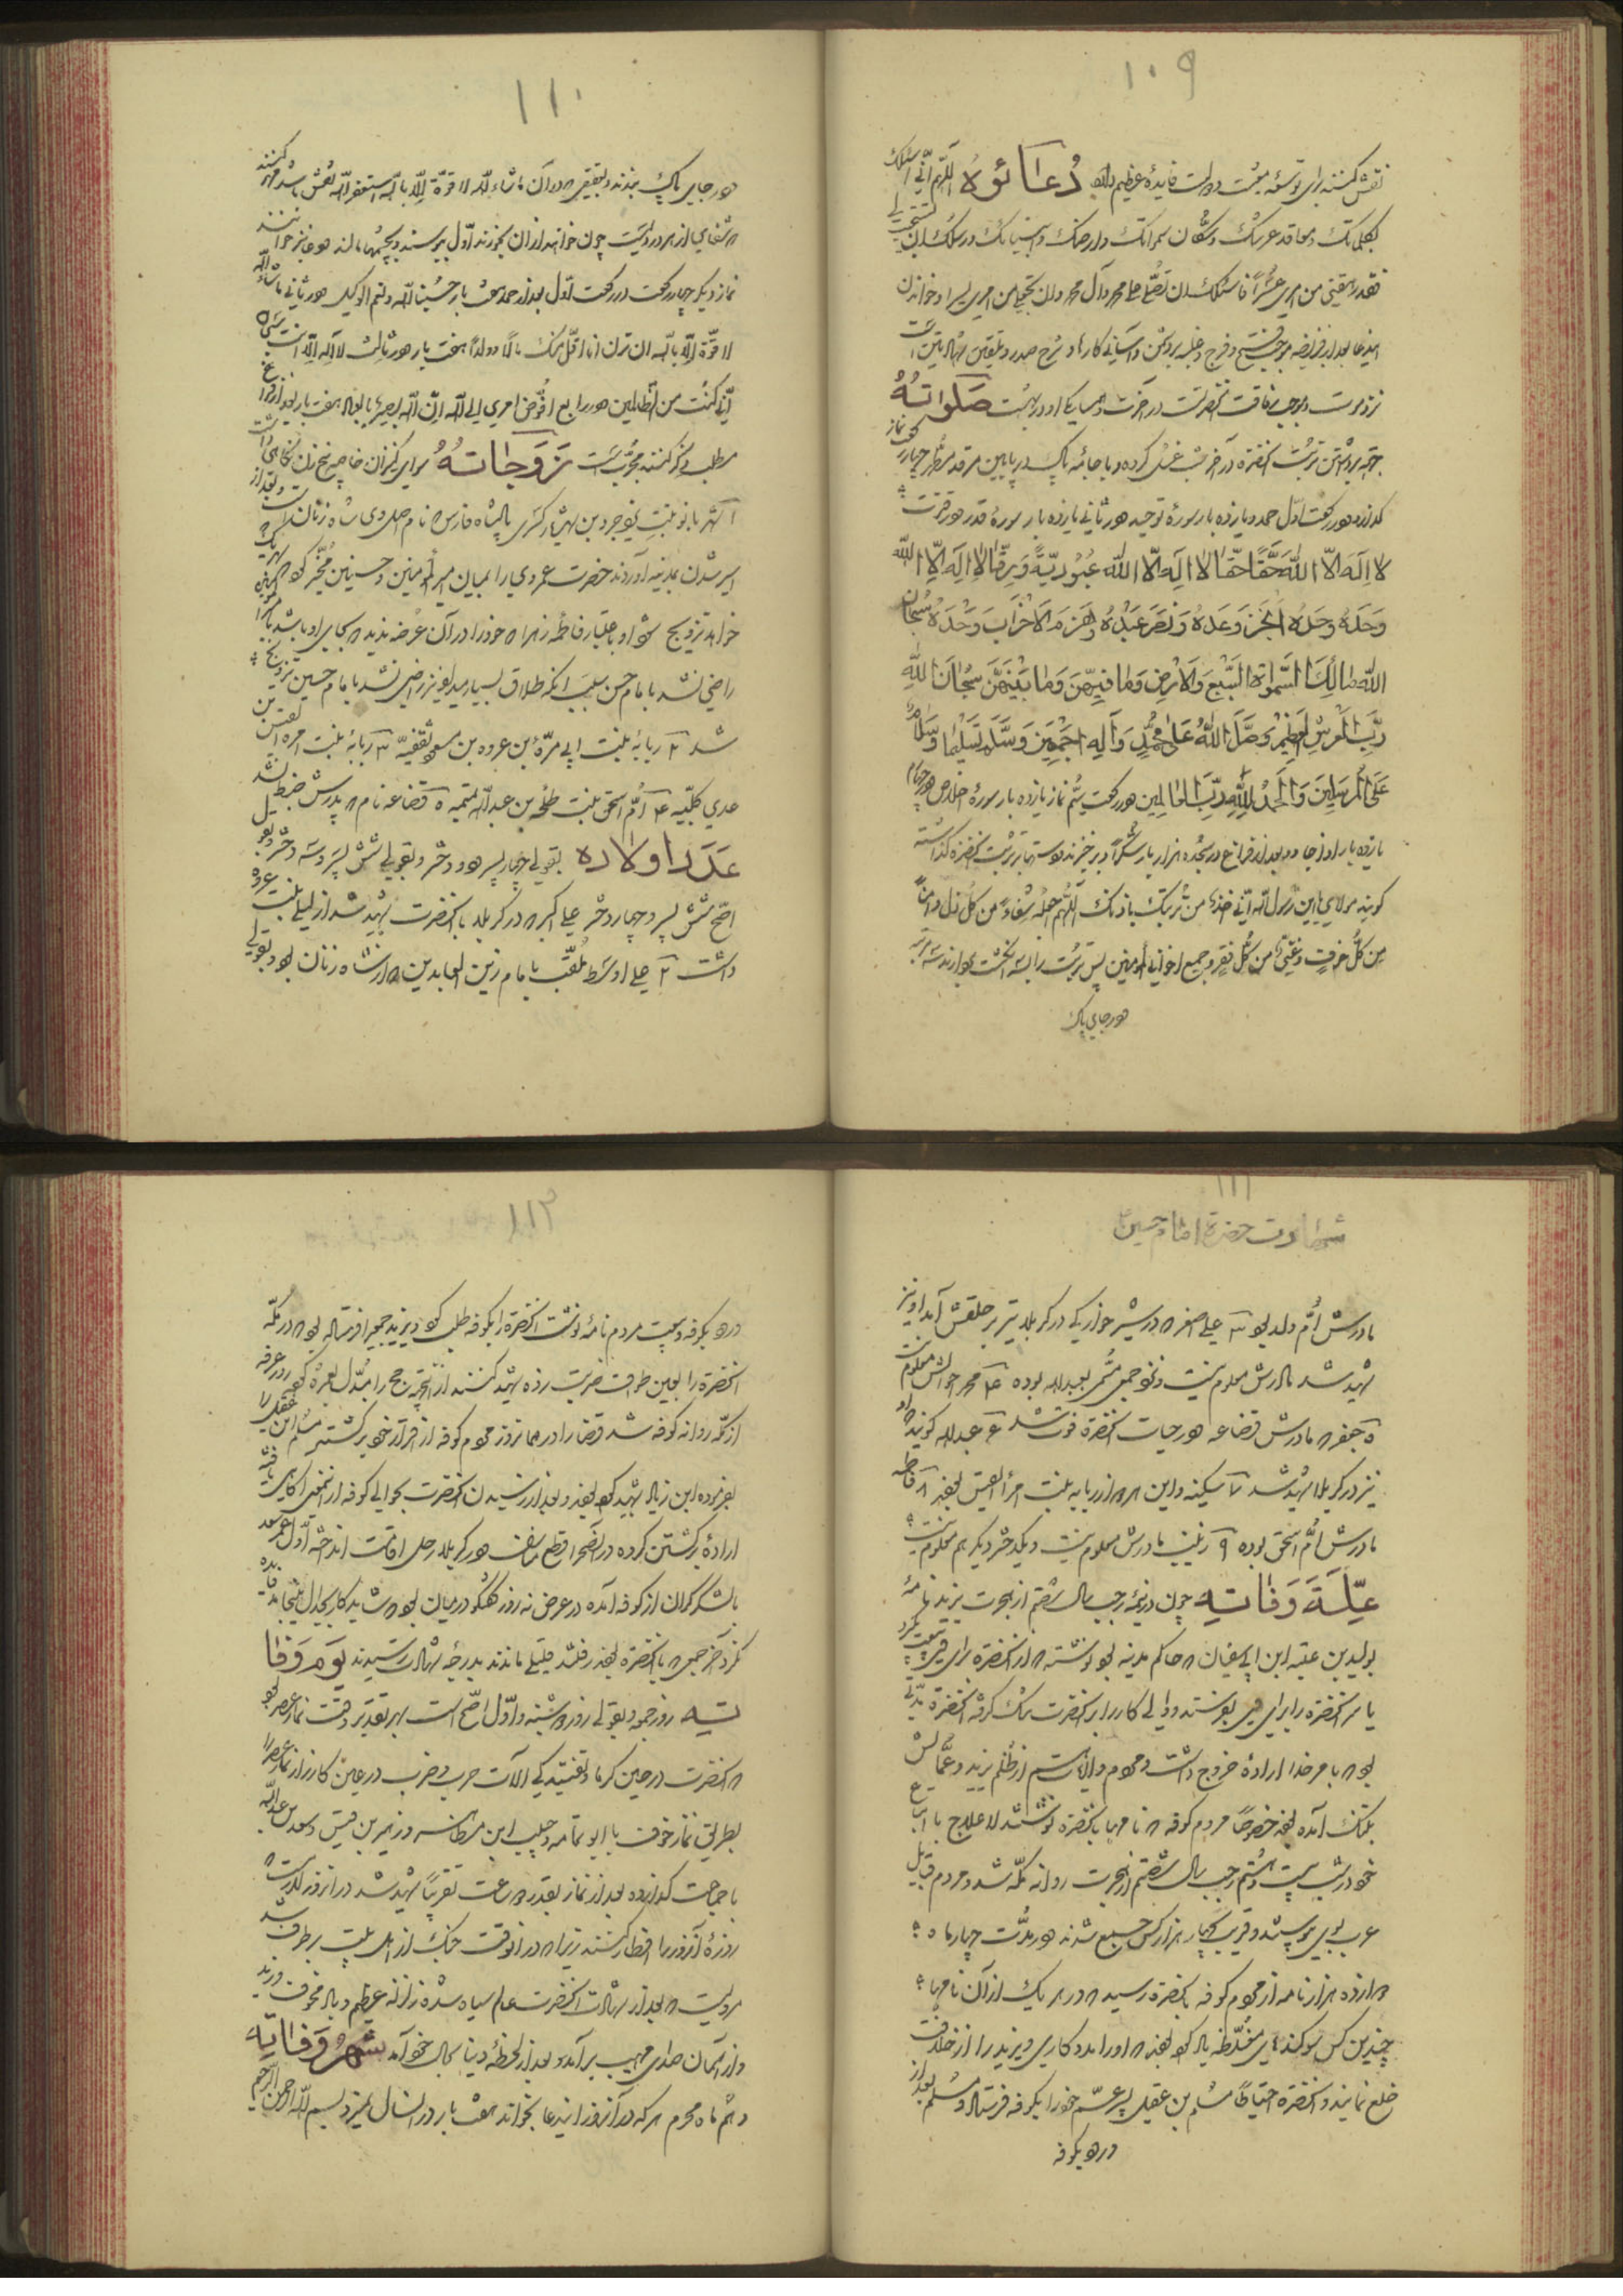 ١٠٩
نقش کنند برای توسعه معیشت و دولت فایدهٔ عظیم دارد دُعَائُوهُ اللّهم انّی اسئلک
بکلماتک ومعاقد عرشک وسکّان سمواتک وارضک وانبیائک ورسلک ان تستجیب لی
فقد رهقنی من امری عسراً فاسئلک ان تصلّی علی محمد وآل محمد وان تجعل من امری یسرا وخواندن
این دعا بعد از فریضه موجب فتح و فرج و غلبه بر دشمن و آسانی کارها و شرح صدر و تلقین شهادتین است
نزد موت و موجب رفاقت آنحضرت در آخرت و همسایکی او در بهشت صَلَوَاتُهُ
جهة برداشتن تربت آنحضرة در آخر شب غسل کرده و با جامهٔ پاک در پایین مرقد مطهر چهار رکعت نماز
کذارد و در رکعت اول حمد و یازده بار سورهٔ توحید و در ثانی یازده بار سورهٔ قدر و در قنوت
لا اِلَهَ اِلّا اللّه حَقًّا حَقًّا لا اِلَهَ اِلّا اللّه عُبُودِیّةً وَرِقًّا لا اِلَهَ اِلّا اللّه
وَحدَهُ وَحدَهُ اَنجَزَ وَعدَهُ وَنَصَرَ عَبدُهُ وَهَزَمَ الاَحْزابَ وَحْدَهُ سُبْحانَ
اللّه مالِكَ السَّمواتِ السَّبعِ وَالاَرْضِ وَما فِیهِنَّ وَما بَیْنَهُنَّ سُبْحانَ اللّهِ
رَبِّ العَرْشِ العَظیمْ وَصَلَّ اللّهُ عَلی مُحَمَّدٍ وَآلِهِ اجمَعِینَ وَسَلَّمَ تَسْلِیما وَسَلامٌ
عَلَی المُرسَلِینَ وَالحَمدُ لِلّهِ رَبِّ العالَمِین و در رکعت سیّم نماز یازده بار سورهٔ اخلاص و در چهارم
یازده بار اذا جاء و بعد از فراغ در سجده هزار بار شکراً و بر خیزند و دست بر تربت آنحضرة کذاشته
کویند مولای یابن رسول اللّه انّی آخذ من تربتک باذنک اللّهم اجعله شفاءً من کلّ ذل وامناً
من کلّ خوفٍ وغنیً من کلّ فقرٍ وجمیع اخوانی المؤمنین پس تربت را بسه انکشت بردارند سه مرتبه
در جای پاک
١١٠
در جای پاک بنهند و بعقیقی که در آن ماشاء اللّه لا قوّة الّا باللّه استغفر اللّه نقش باشد مهر کنند
که شفای از هر درد است چون خواهند از آن بخورند اوّل ببوسند و بچشمها مالند
نماز دیکر چهار رکعت در رکعت اوّل بعد از حمد هفت بار حسبنا اللّه ونعم الوکیل و در ثانی ماشاء اللّه
لا قوّة الّا باللّه ان ترن انا اقلّ منک مالاً وولداً هفت بار و در ثالث لا اله الّا انت سبحانک
انّی کنت من الظالمین و در رابع افوّض امری الی اللّه انّ اللّه بصیر بالعباد هفت بار بعد از فراغ
مطلب ذکر کنند مجرّب است زَوَجَاتهُ سوای کنیزان خاصه پنج زن نکاحی داشت
آ شهر بانو بنت یزدجرد بن شهریار کسری پادشاه فارس که نام اصلی وی شاه زنان است و بعد از
اسیر شدن بمدینه آوردند حضرت عمر وی را بمیان امیر المؤمنین وحسنین مخیّر کرد که بهریک
خواهد تزویج شود
راضی نشد بامام حسن بسبب آنکه طلاق بسیار میداد نیز راضی نشد بامام حسین تزویج
شد ٢ ربابه بنت ابی مرّة بن عروه بن مسعود ثقفیه ٣ ربابه بنت امرء القیس بن
عدی کلبیه ٤ امّ اسحق بنت طلحه بن عبد اللّه تیمیه ٥ قضاعه نام پدرش ضبط نشد
عَدَد اولاده بقولی چهار پسر و دو دختر و بقولی شش پسر و سه دختر
اصحّ شش پسر و چهار دختر علی اکبر که در کربلا با آنحضرت شهید شد از لیلی بنت عروه
داشت ٢ علی اوسط ملقّب بامام زین العابدین که از شاه زنان بود و بقولی
١١١
شهادت حضرة امام حسین
مادرش اُمّ ولد بود ٣ علی اصغر که در شیر خوارکی در کربلا تیر بر حلقش آمد او نیز
شهید شد مادرش معلوم نیست و نزد جمعی مسمّی بعبد اللّه بوده ٤ محمد احوالش معلوم نیست
٥ جعفر که مادرش قضاعه در حیات آنحضرة فوت شد ٦ عبد اللّه کویند که او
نیز در کربلا شهید شد ٧ سکینه و این هر دو از ربابه بنت امرأ القیس بودند ٨ فاطمه
مادرش اُمّ اسحق بوده ٩ زینب مادرش معلوم نیست و یکدختر دیکر هم معلوم نیست
عِلّةَ وَفاتِه چون در نیمهٔ رجب سال شصتم از هجرت یزید نامهٔ
بولید بن عتبه ابن ابی سفیان که حاکم مدینه بود نوشته که از آنحضرة برای من بیعت بکیرد
یا سر آنحضرة را برای من بفرستد و ولید کار را بر آنحضرت تنک کرفت آنحضرة
بود که با مر خدا ارادهٔ خروج داشت و مردم ولایات هم از ظلم یزید و عمّالش
بتنک آمده بودند خصوصاً مردم کوفه که نامها بآنحضرة نوشتند لا علاج با اتباع
خود در شب بیست و هشتم رجب سال شصتم از هجرت روانه مکّه شد و مردم قبایل
عرب بوی پیوستند و قریب چهار هزار کس جمع شدند در مدّت چهار ماه
دوازده هزار نامه از مردم کوفه بآنحضرة رسید که در هر یک از آن نامها
چندین کس سوکندهای مغلّظه یاد کرده بودند که او را مدد کاری و یزید را از خلافت
خلع نمایند و آنحضرة احتیاطاً مسلم بن عقیل پسر عمّ خود را بکوفه فرستاد و مسلم بعد از
ورود بکوفه
١١٢
ورود بکوفه و بیعت مردم نامه نوشت آنحضرة را بکوفه طلب کرد و یزید جمعی را فرستاده بود که در مکّه
آنحضرة را بعین طواف ضربت زده شهید کنند از آنجهة حج را مبدّل بعمره کرده روز عرفه
از مکّه روانه کوفه شد قضا را در همانروز مردم کوفه از قرار خود برکشتند مسلم ابن عقیل را
بفرموده ابن زیاد شهید کرده بودند و بعد از رسیدن آنحضرت بحوالی کوفه از آنمعنی آکاهی یافته
ارادهٔ برکشتن کرده در آنصحرا قطع مسافت و در کربلا رحل اقامت انداخته اوّل
با لشکر کران از کوفه آمده در عرض نه روز کفتکو در میان بود که شاید کار بجدال نینجامد فایده
نکرد آخر جمعی که با آنحضرة بودند رفتند قلیلی ماندند بدرجهٔ شهادت رسیدند یَوم وَفا
تِه روز جمعه و بقولی روز دوشنبه و اوّل اصحّ است بهر تقدیر وقت نماز عصر بود
که آنحضرت در حین کرما و تشنکی و آلات حرب و ضرب در عین کارزار نماز عصر را
بطریق نماز خوف با ابو ثمامه و حبیب ابن مظاهر و زهیر بن قیس و سعد بن عبد اللّه
با جماعت کذارده بعد از نماز بقدر دو ساعت تقریباً شهید شد در آنروز
روزهٔ آنروز را افطار کنند زیرا که در آنوقت جنک از اهل بیت برطرف شد
مرویست که بعد از شهادت آنحضرت عالم سیاه شده زلزله عظیم و باد مخوف وزید
و از آسمان صدای مهیب برآمد و بعد از لحظهٔ دنیا بحال خود آمد شَهرُ وَفاتِه
دهم ماه محرم هر که در آنروز این دعا بخواند هفت بار در آنسال نمیرد بسم اللّه الرحمن الرحیم